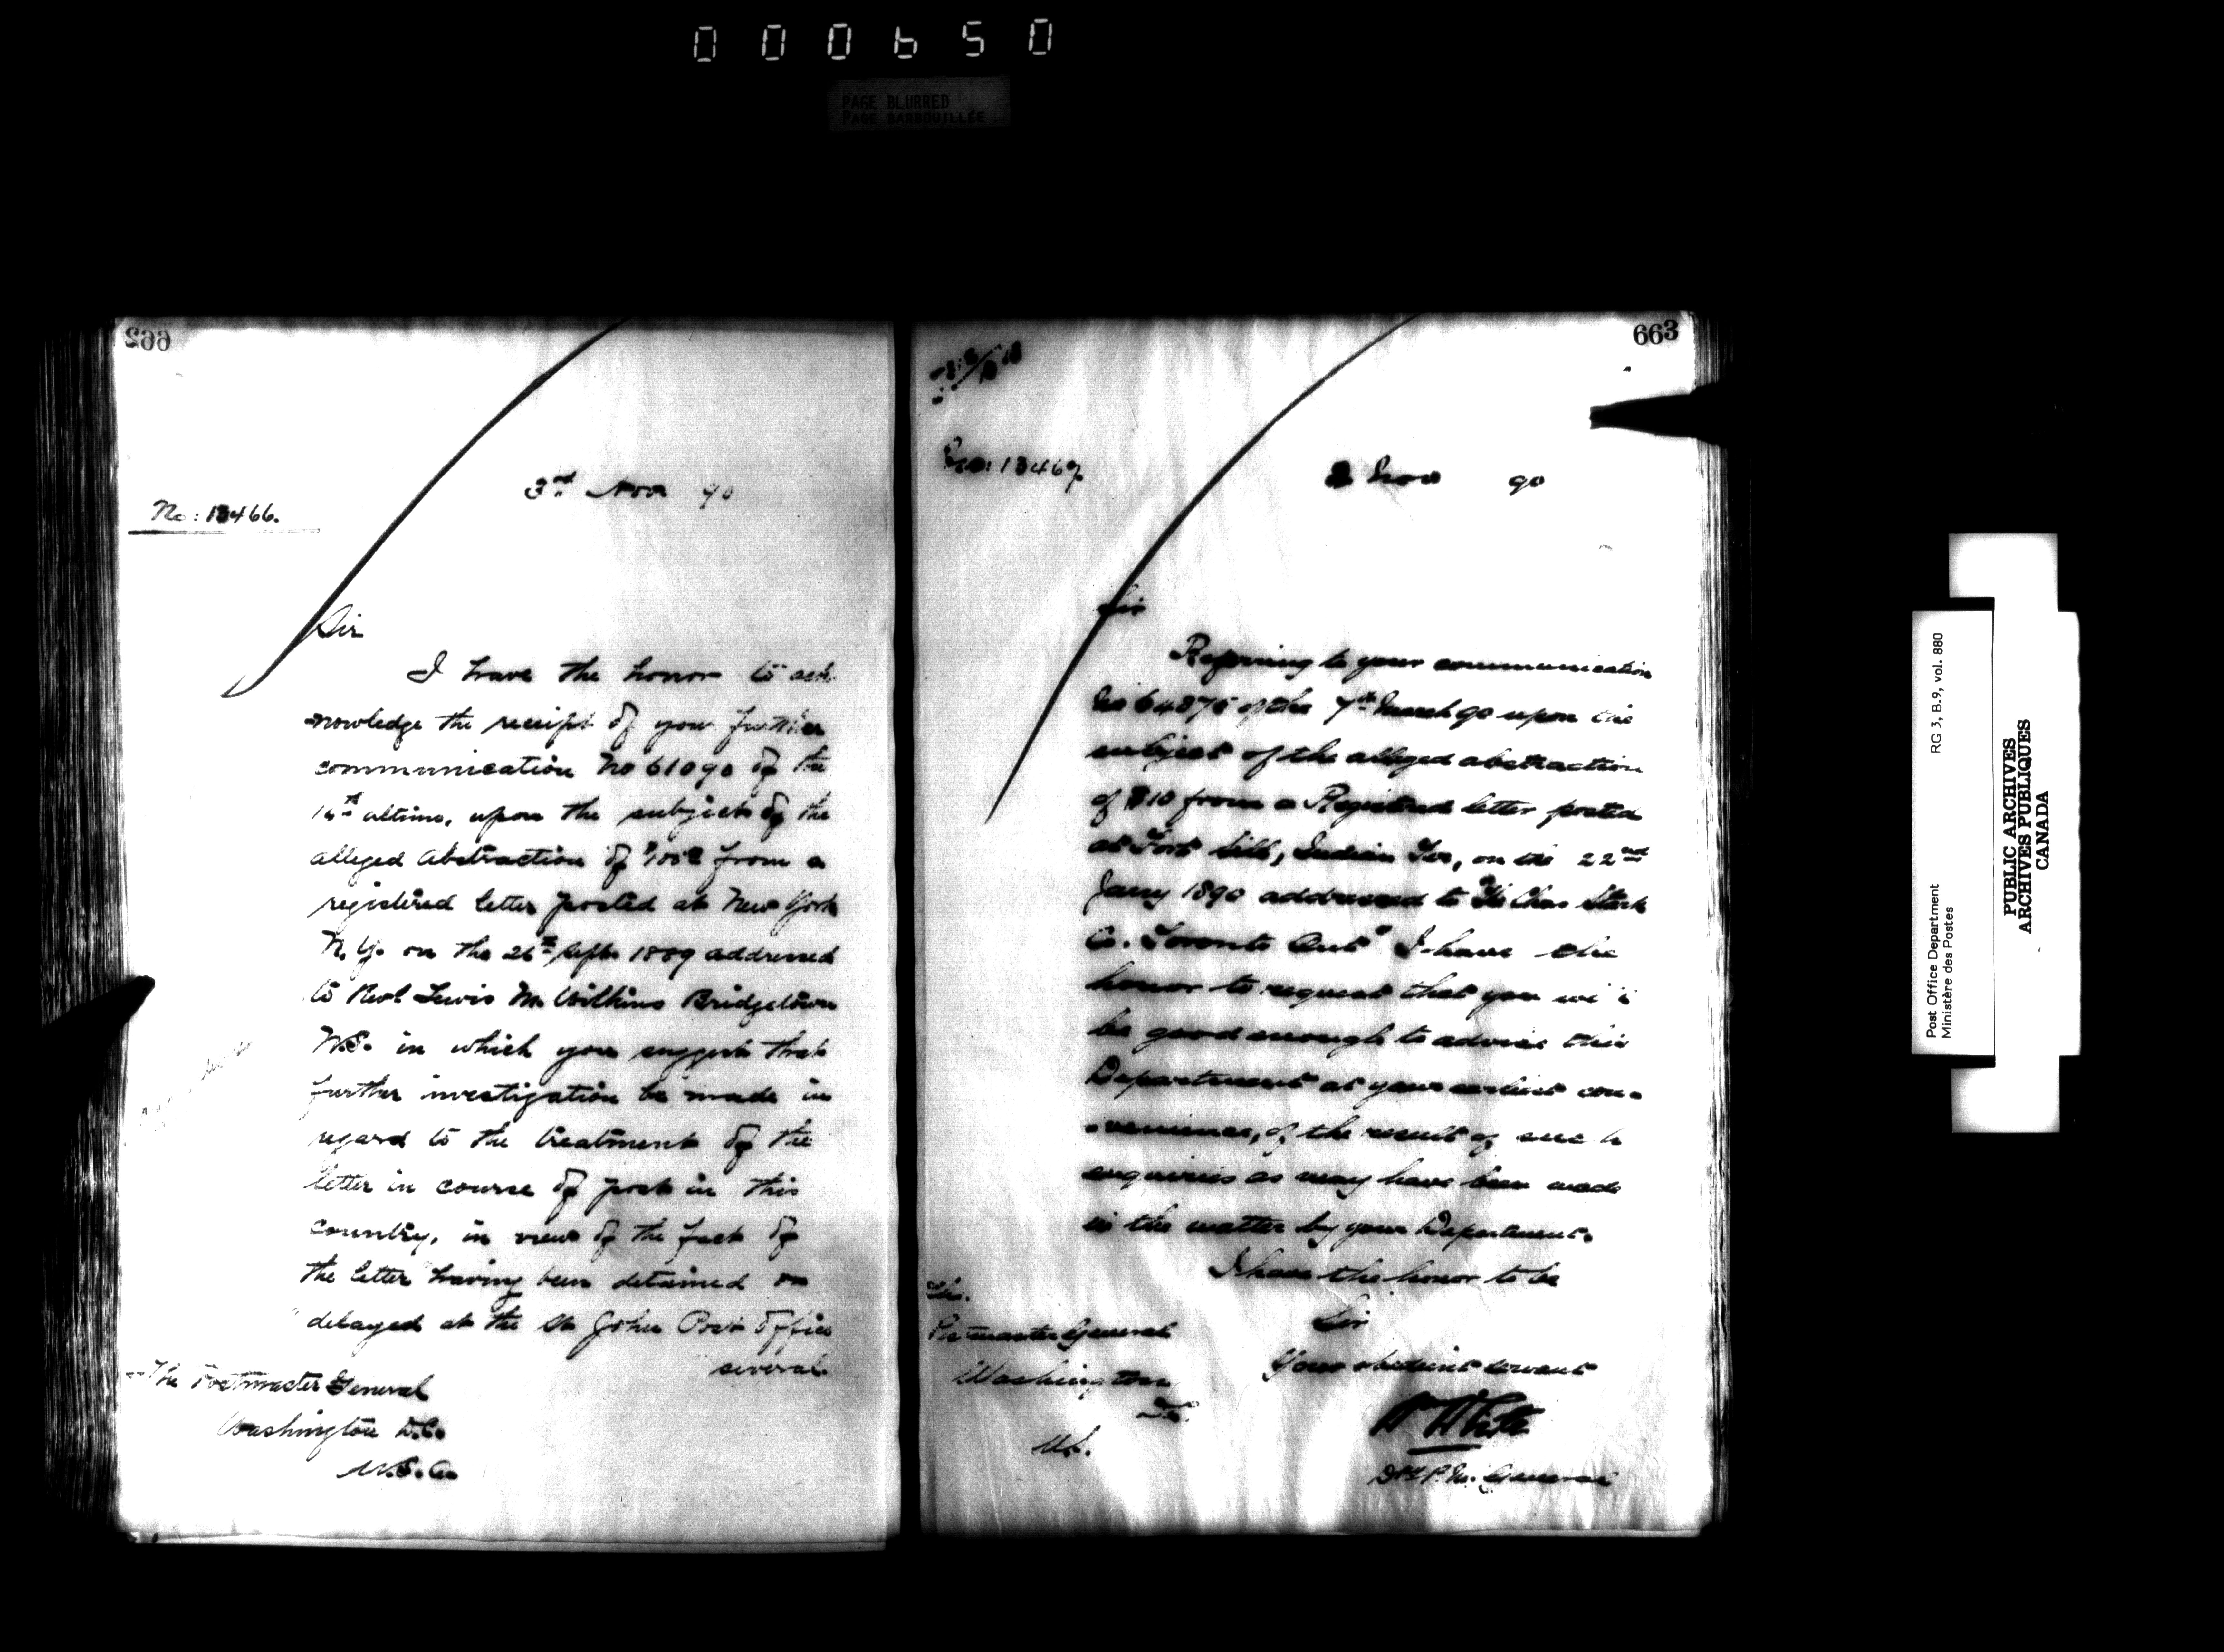 000650
PAGE BLURRED
PAGE BARBOUILLÉE
662
3rd Nov 90
No: 13466.
Sir
I have the honor to ack
nowledge the receipt of your further
communication No 61090 of the
ultimo, upon the subject of the
alleged abstraction of from a
registered letter posted at New York
N.Y. on the 26th Sepr 1889 addressed
to Revd Lewis M. Wilkins Bridgetown
N.S. in which you suggest that
further investigation be made in
regard to the treatment of the
letter in course of post in this
country, in view of the fact of
the letter having been detained or
delayed at the St John Post Office
several
The Postmaster General
Washington D.C.
U.S.A.
663
No: 13467
Nov 90
Sir
Referring to your communication
No 64875 of the 7th March 90 upon the
subject of the alleged abstraction
of $10 from a Registered letter posted
at Fort Sill, Indian Ter, on the 22nd
Jany 1890 addressed to "The Chas Stark
Co. Toronto Ont" I have the
honor to request that you wi
be good enough to advise this
Department at your earliest con-
venience, of the result of such
enquiries as may have been made
in the matter by your Department.
I have the honor to be
Sir
Your obedient servant
Wm White
Dy P.M. General
The
Postmaster General
Washington
D.C.
U.S.
Post Office Department
Ministère des Postes
RG 3, B.9, vol. 880
PUBLIC ARCHIVES
ARCHIVES PUBLIQUES
CANADA